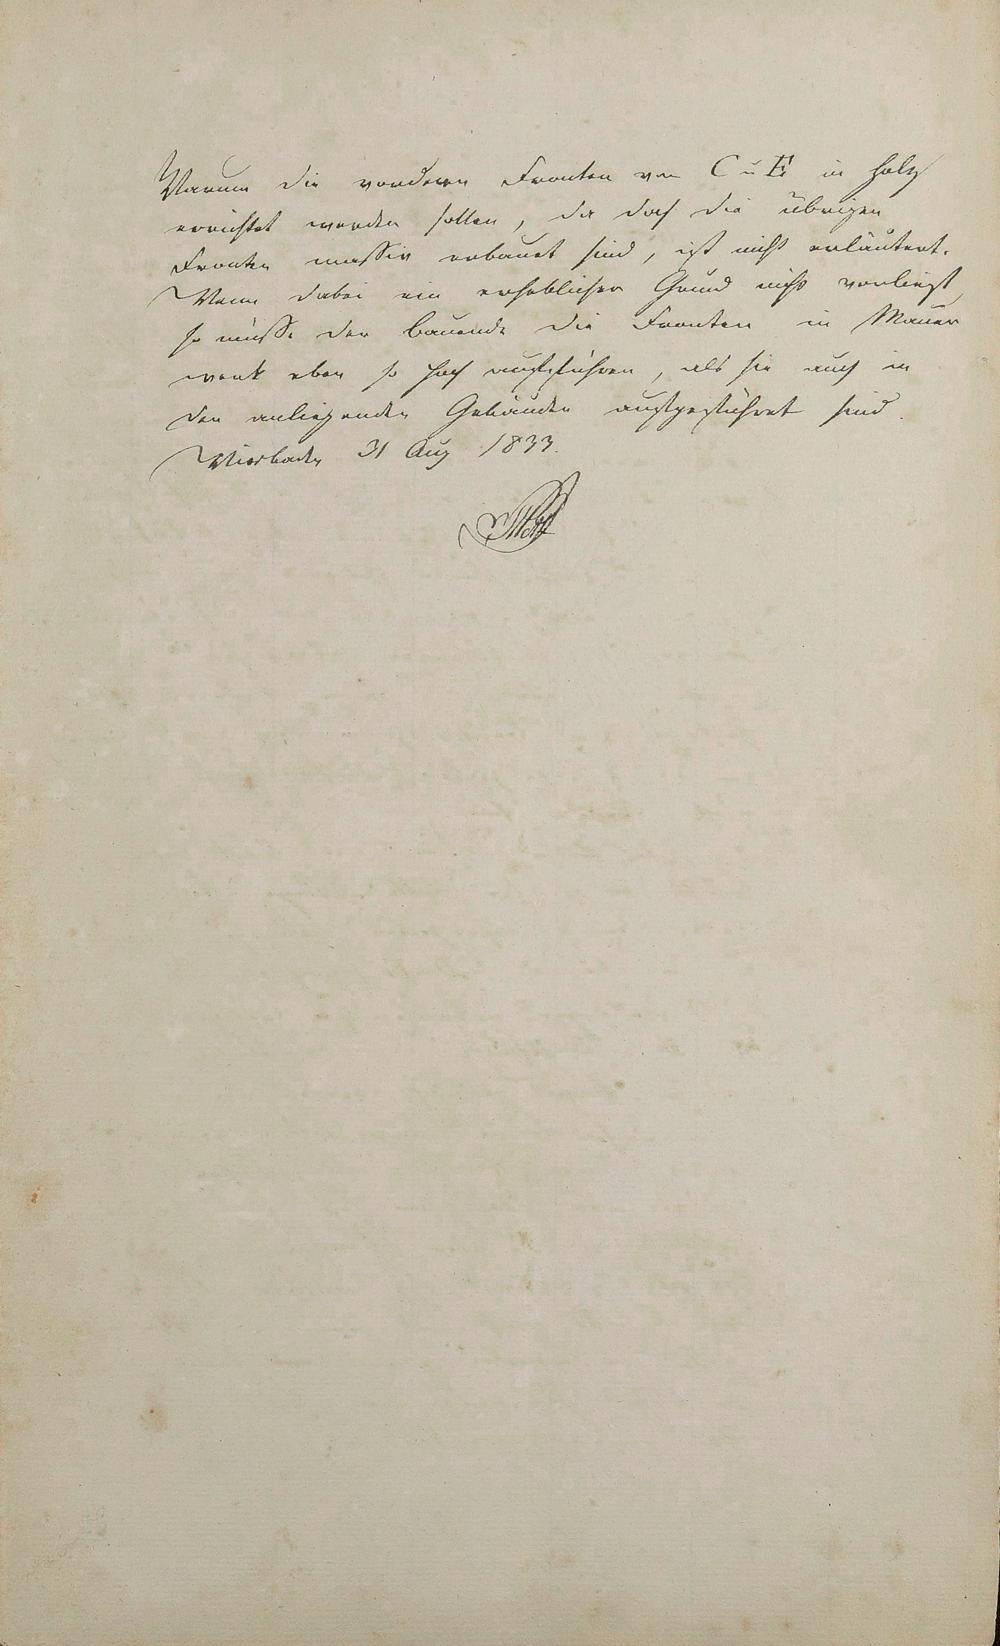 Warum die vordern Fronten von C u E in Holz
errichtet werden sollen, da doch die übrigen
Fronten massiv erbauet sind, ist nicht erläutert.
Wenn dabei ein erheblicher Grund nicht vorliegt
so müsse der Bauende die Fronten in Mauer
werk eben so hoch aufführen, als sie auch in
den anliegenden Gebäuden aufgeführet sind.
Wiesbaden 31 Aug 1833.